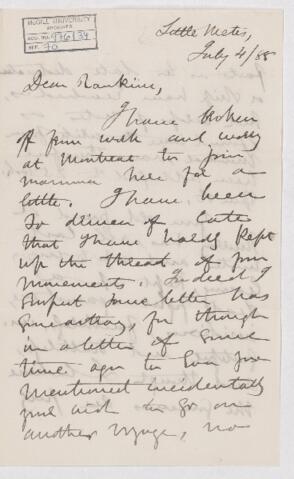 McGILL UNIVERSITY
ARCHIVES
ACC. NO. 1761/34
REF. 70
Little Metis,
July 4/88
Dear Rankine,
I have broken
off from work and worry
at Montreal to join
mamma here for a
little. I have been
so driven of late
that I have hardly kept
up the thread of your
movements. Indeed I
suspect some letter has
gone astray, for though
in a letter of some
time ago to Eva you
mentioned incidentally
your wish to go on
another voyage, no